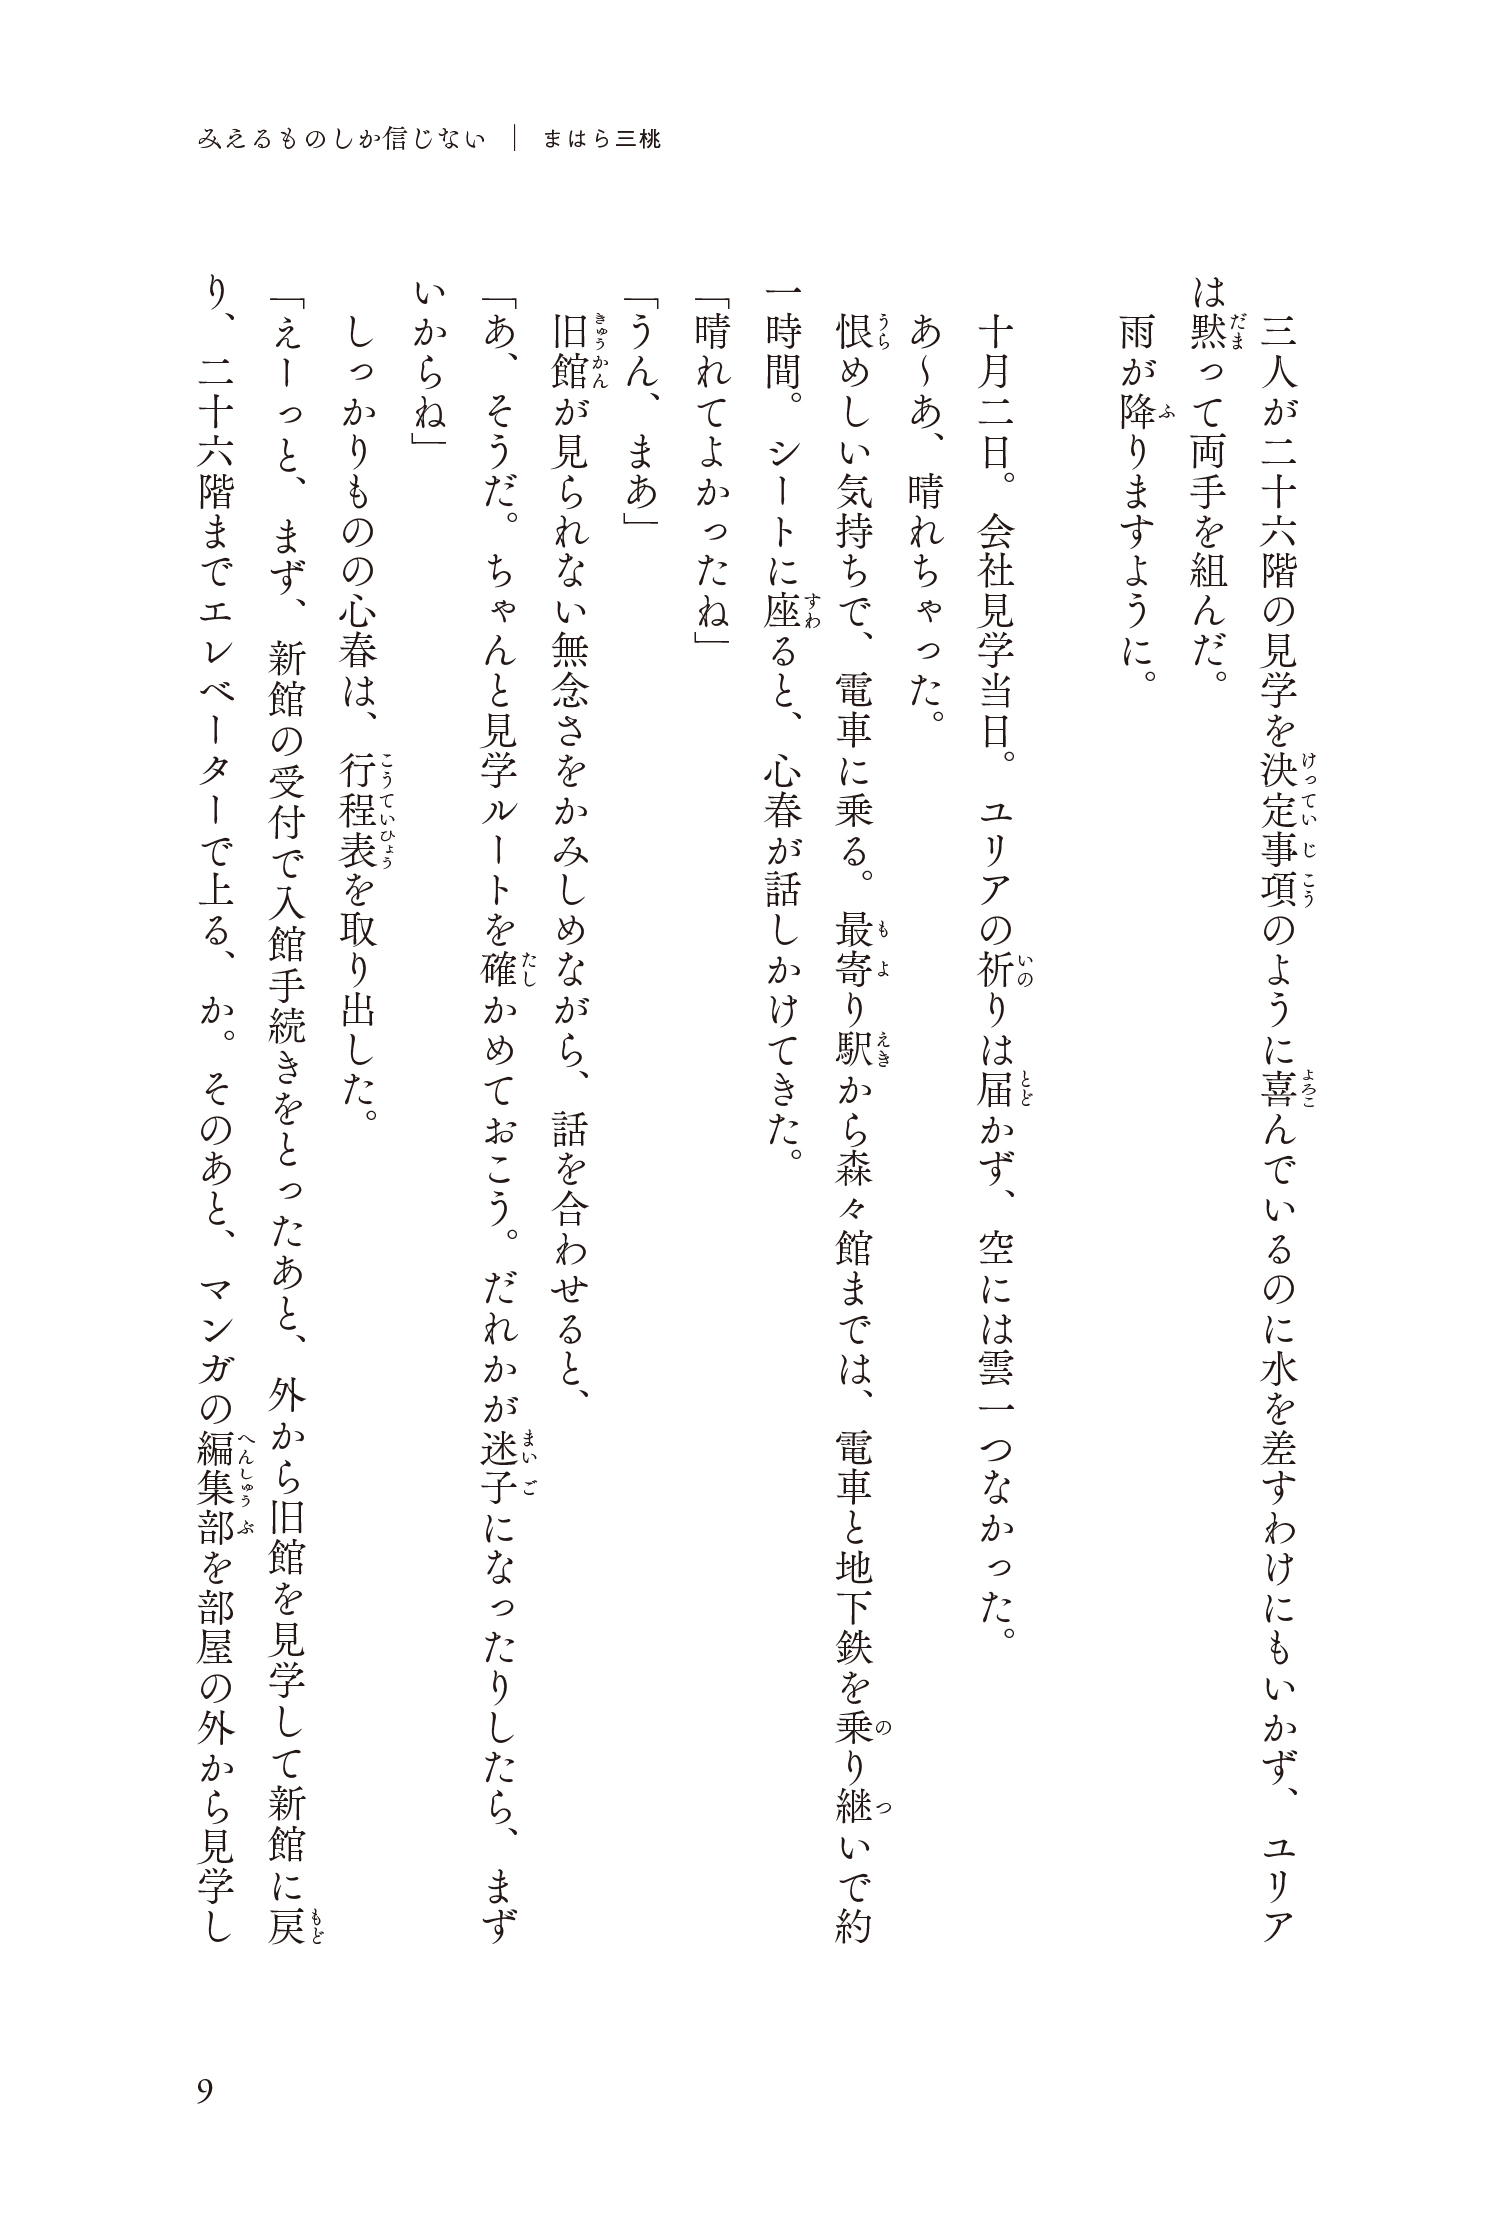 みえるものしか信じない｜まはら三桃
　三人が二十六階の見学を決定事項のように喜んでいるのに水を差すわけにもいかず、ユリア
は黙って両手を組んだ。
　雨が降りますように。
　十月二日。会社見学当日。ユリアの祈りは届かず、空には雲一つなかった。
　あ～あ、晴れちゃった。
　恨めしい気持ちで、電車に乗る。最寄り駅から森々館までは、電車と地下鉄を乗り継いで約
一時間。シートに座ると、心春が話しかけてきた。
「晴れてよかったね」
「うん、まあ」
　旧館が見られない無念さをかみしめながら、話を合わせると、
「あ、そうだ。ちゃんと見学ルートを確かめておこう。だれかが迷子になったりしたら、まず
いからね」
　しっかりものの心春は、行程表を取り出した。
「えーっと、まず、新館の受付で入館手続きをとったあと、外から旧館を見学して新館に戻
り、二十六階までエレベーターで上る、か。そのあと、マンガの編集部を部屋の外から見学し
9